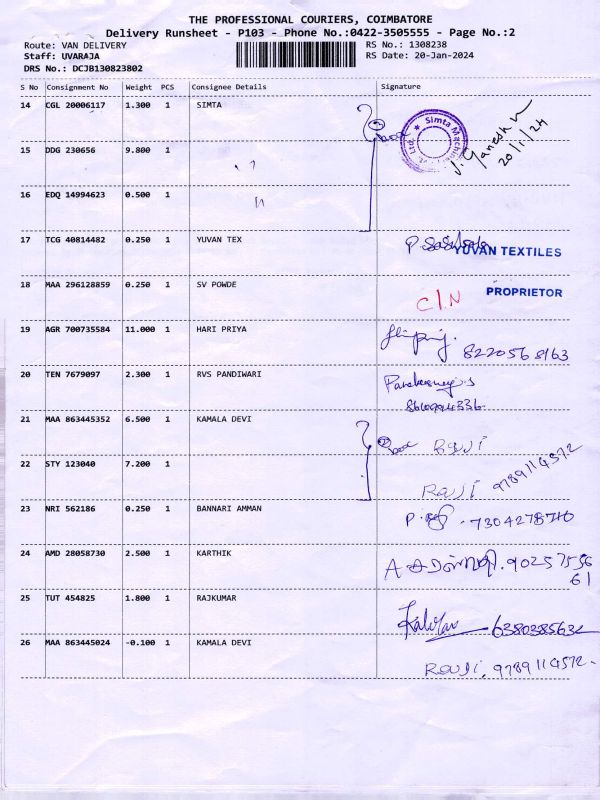 THE PROFESSIONAL COURIERS, COIMBATORE
Delivery Runsheet - P103 - Phone No.:0422-3505555 - Page No.:2
Route: VAN DELIVERY RS No.: 1308238
Staff: UVARAJA RS Date: 20-Jan-2024
DRS No.: DCJB130823802
S No Consignment No Weight PCS Consignee Details Signature
14 CGL 20006117 1.300 1 SIMTA
Simta Machinery
J. Ganesh
20/1/24
15 DDG 230656 9.800 1
16 EDQ 14994623 0.500 1
17 TCG 40814482 0.250 1 YUVAN TEX
YUVAN TEXTILES
18 MAA 296128859 0.250 1 SV POWDE
C/N PROPRIETOR
19 AGR 700735584 11.000 1 HARI PRIYA
8220568163
20 TEN 7679097 2.300 1 RVS PANDIWARI
21 MAA 863445352 6.500 1 KAMALA DEVI
22 STY 123040 7.200 1
Rouji 9789114572
23 NRI 562186 0.250 1 BANNARI AMMAN
24 AMD 28058730 2.500 1 KARTHIK
25 TUT 454825 1.800 1 RAJKUMAR
26 MAA 863445024 -0.100 1 KAMALA DEVI
Rouji. 9789114572.